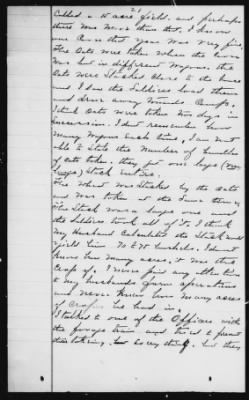 21
Called a 10 acre field, and perhaps
there was more than that. I know
our Corn that year was very fine.
The Oats were taken when the corn
was but in different Wagons the
Oats were Stacked close to the house
and I saw the Soldiers load them
and drive away towards Camp.
I think Oats were taken two days in
succession. I don't remember how
many Wagons each time, I am not
able to State the Number of bundles
of oats taken, they put one large (very
large) Stack entire.
The Wheat was Stacked by the oats
and was taken at the Same time
The Stack was a large one and
the Soldiers took all of it. I think
my Husband Calculated the Stack would
yield him 70 bushels. I don't
know how many acres, it was the
Crop of. I never paid any attention
to my husbands farm operations
and never knew how many acres
of Crops he had in.
I talked to one of the Officers with
the forage train and tried to prevent
their taking every thing but they